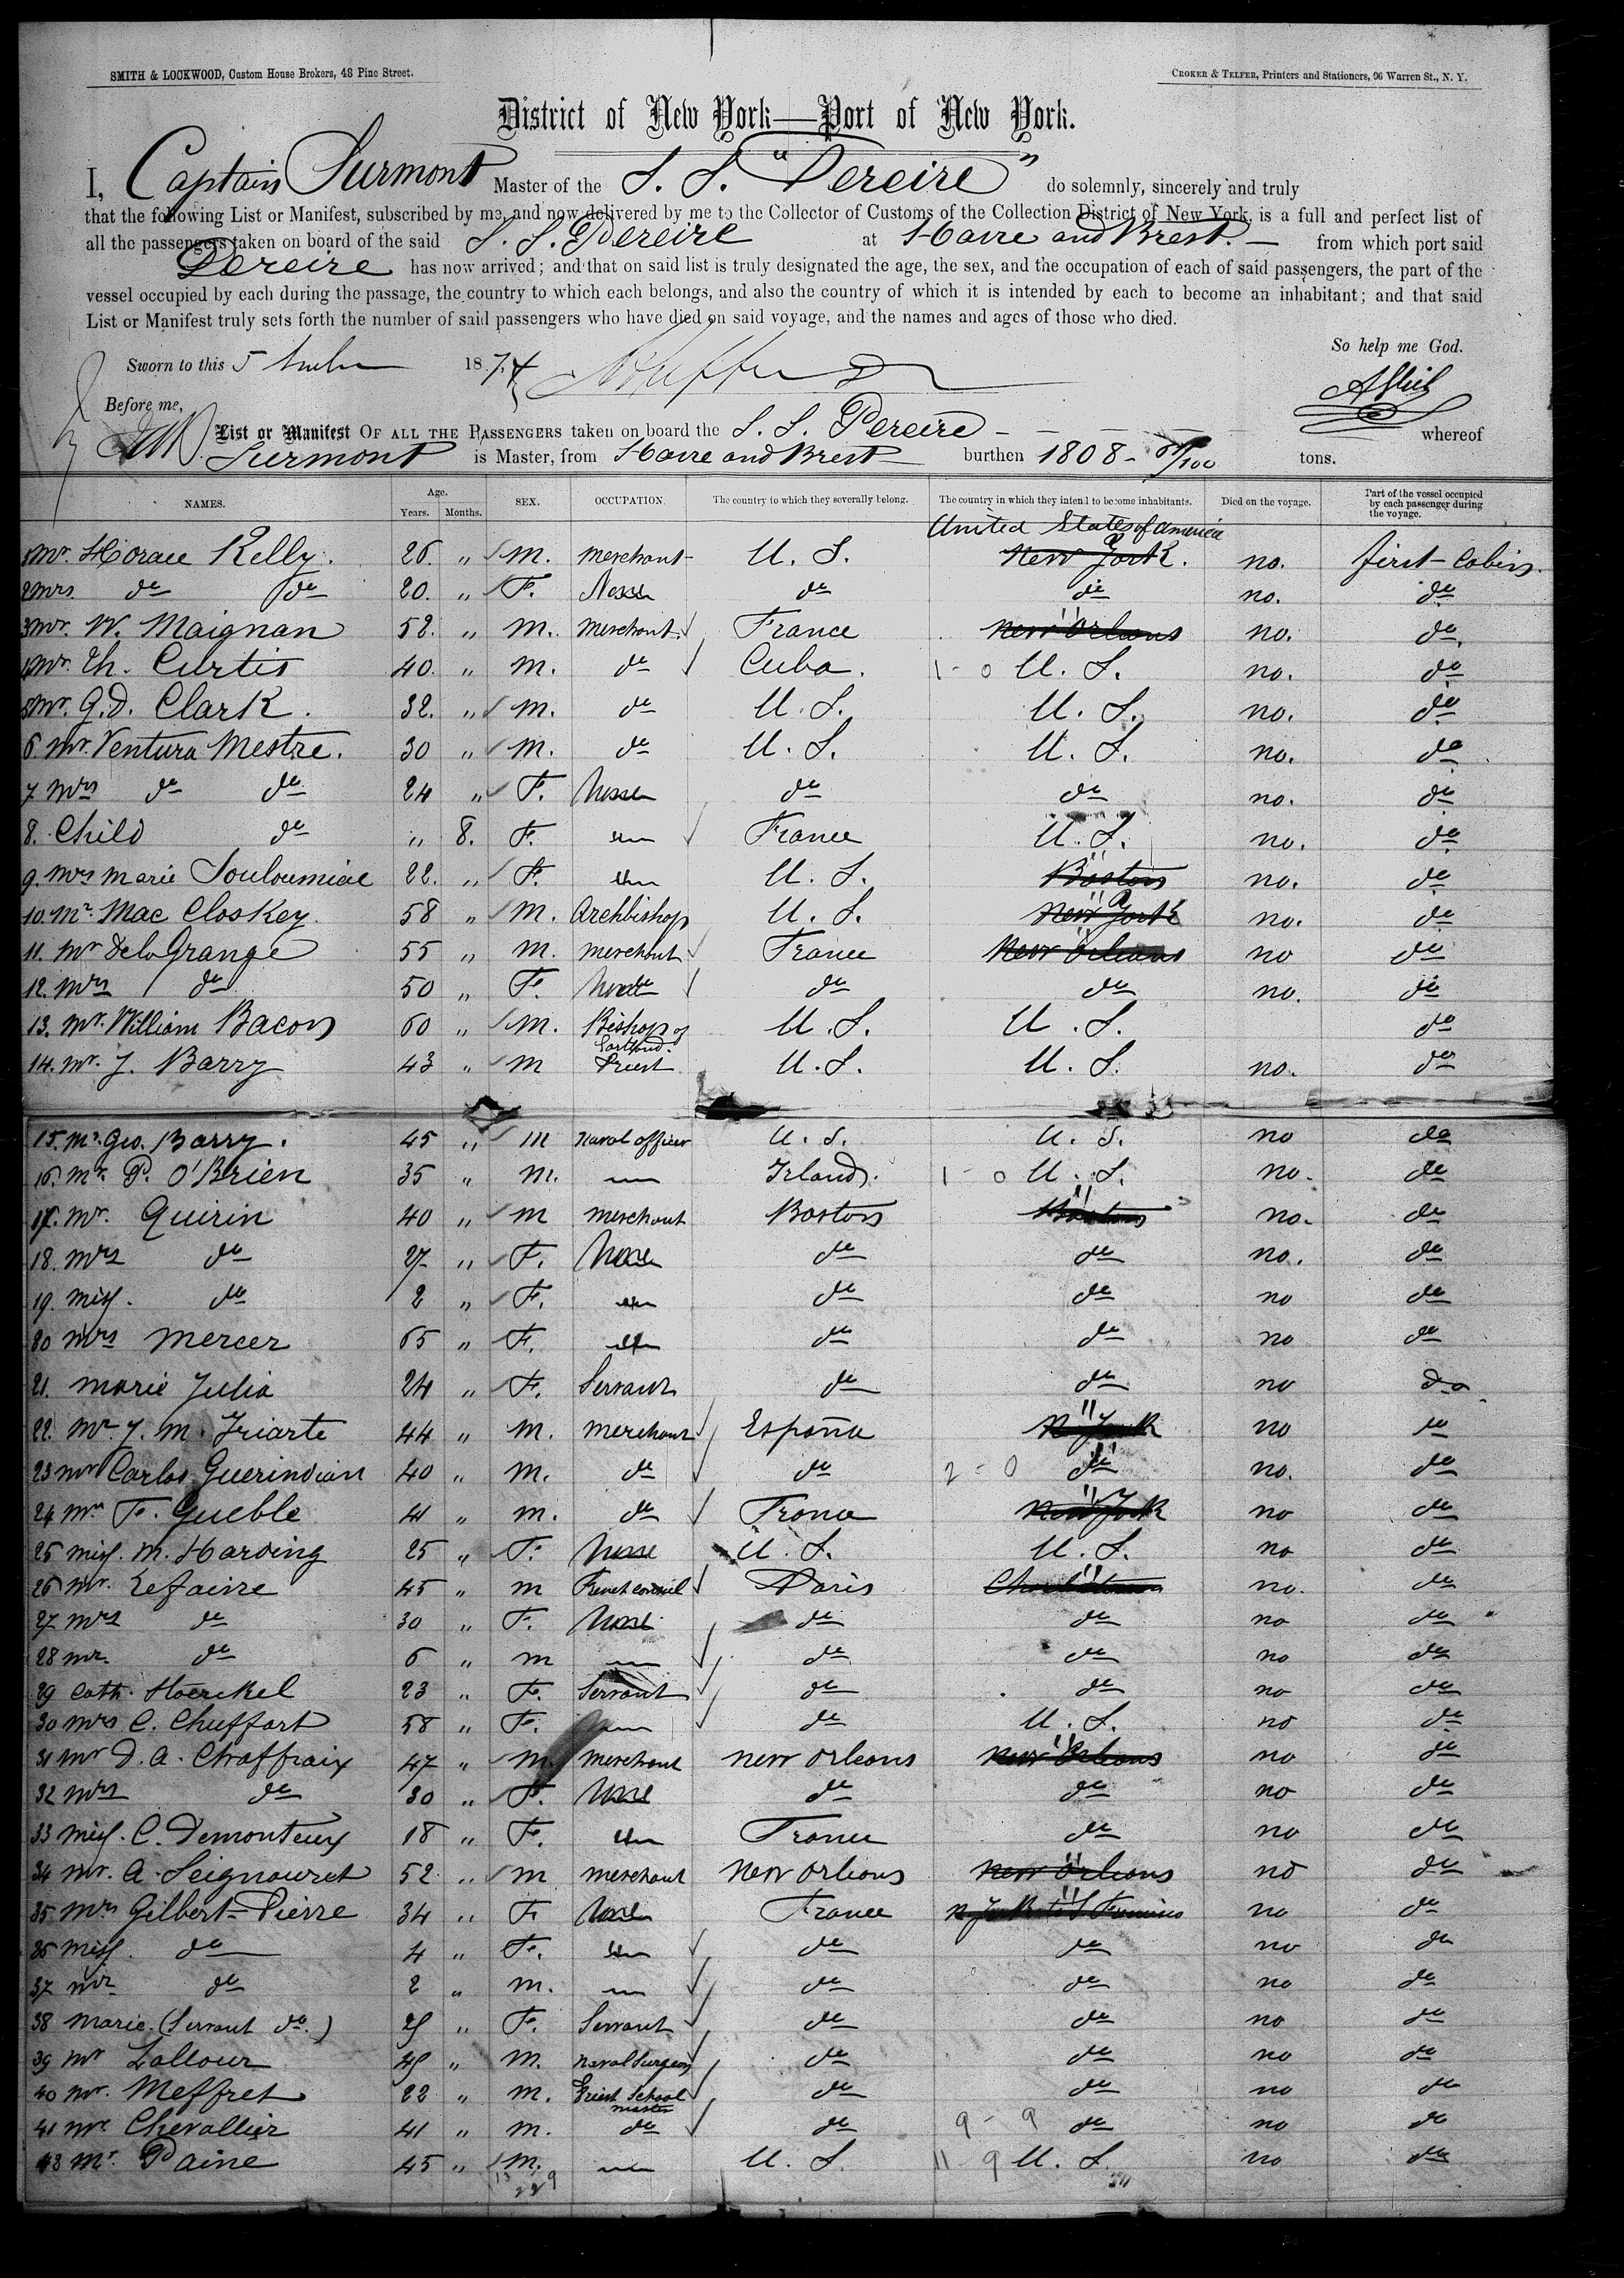 SMITH & LOCKWOOD, Custom House Brokers, 48 Pine Street.
CROKER & TELFER, Printers and Stationers, 96 Warren St., N. Y.
District of New York—Port of New York.
I, Captain Surmont Master of the S. S. "Pereire" do solemnly, sincerely and truly
that the following List or Manifest, subscribed by me, and now delivered by me to the Collector of Customs of the Collection District of New York, is a full and perfect list of
all the passengers taken on board of the said S. S. Pereire at Havre and Brest. — from which port said
Pereire has now arrived; and that on said list is truly designated the age, the sex, and the occupation of each of said passengers, the part of the
vessel occupied by each during the passage, the country to which each belongs, and also the country of which it is intended by each to become an inhabitant; and that said
List or Manifest truly sets forth the number of said passengers who have died on said voyage, and the names and ages of those who died.
So help me God.
Sworn to this 5 1874
Before me,
List or Manifest OF ALL THE PASSENGERS taken on board the S. S. Pereire — whereof
Surmont is Master, from Havre and Brest burthen 1808 tons.
NAMES. Age. Years. Months. SEX. OCCUPATION. The country to which they severally belong. The country in which they intend to become inhabitants. Died on the voyage. Part of the vessel occupied by each passenger during the voyage.
United States of America
1 Mr. Horace Kelly. 26. " M. Merchant U. S. New York. no. first-Cabin.
2 Mrs. do do 20. " F. None do do no. do
3 Mr. W. Maignan 52. " M. Merchant. France New Orleans no. do
4 Mr. Th. Curtis 40. " M. do Cuba. 1-0 U. S. no. do
5 Mr. G.D. Clark. 32. " M. do U. S. U. S. no. do
6. Mr. Ventura Mestre. 30 " M. do U. S. U. S. no. do
7 Mrs do do 24 " F. None do do no. do
8. Child do " 8. F. France U. S. no. do
9. Mrs Marie Souloumiac 22. " F. U. S. Boston no. do
10. Mr. Mac Closkey. 58 " M. Archbishop U. S. New York no. do
11. Mr DelaGrange 55 " M. Merchant France New Orleans no do
12. Mrs do 50 " F. None do do no. do
13. Mr. William Bacon 60 " M. Bishop of Portland. U. S. U. S. do
14. Mr. J. Barry 43 " M Priest U. S. U. S. no. do
15. Mr. Geo. Barry. 45 " M Naval officer U. S. U. S. no do
16. Mr. P. O'Brien 35 " M. Irland. 1-0 U. S. no. do
17. Mr. Quirin 40 " M Merchant Boston Boston no. do
18. Mrs do 27 " F. None do do no. do
19. Miss. do 2 " F. do do no do
20 Mrs Mercer 65 " F. do do no do
21. Marie Julia 24 " F. Servant do do no do
22. Mr J. M. Iriarte 44 " M. Merchant España N York no do
23 Mr Carlos Guerindian 40 " M. do do 2-0 do no. do
24 Mr F. Gueble 41 " M. do France New York no do
25 Miss. M. Harding 25 " F. None U. S. U. S. no do
26 Mr. Lefaivre 45 " M French consul Paris Charlestown no. do
27 Mrs do 30 " F. None do do no do
28 Mr. do 6 " M do do no do
29 Cath. Hoerckel 23 " F. Servant do do no do
30 Mrs C. Chuffart 58 " F. do U. S. no do
31 Mr D. A. Chaffraix 47 " M. Merchant New Orleans New Orleans no do
32 Mrs do 30 " F. None do do no do
33 Miss. C. Demonteux 18 " F. France do no do
34 Mr. A. Seignouret 52. " M Merchant New Orleans New Orleans no do
35 Mrs Gilbert-Pierre 34 " F None France N York to S Francisco no do
36 Miss. do 4 " F. do do no do
37 Mr do 2 " M. do do no do
38 Marie. (Servant do.) 25 " F. Servant do do no do
39 Mr Lallour 45 " M. Naval Surgeon do do no do
40 Mr. Meffret 22 " M. Priest School master do do no do
41 Mr Chevallier 41 " M. do do 9-9 do no do
43 Mr. Paine 45 " M. U. S. 11 9 U. S. no do